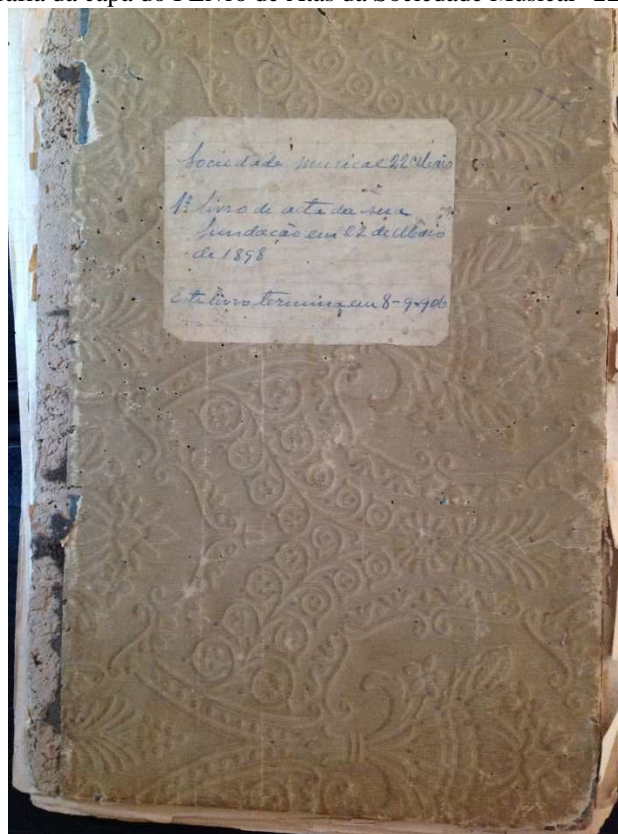 da capa do I Livro de Atas da Sociedade Musical "22
Sociedade musical 22 Maio
1º livro de acta da sua
fundação em 22 de Maio
de 1898
Este livro termina em 8-9-906